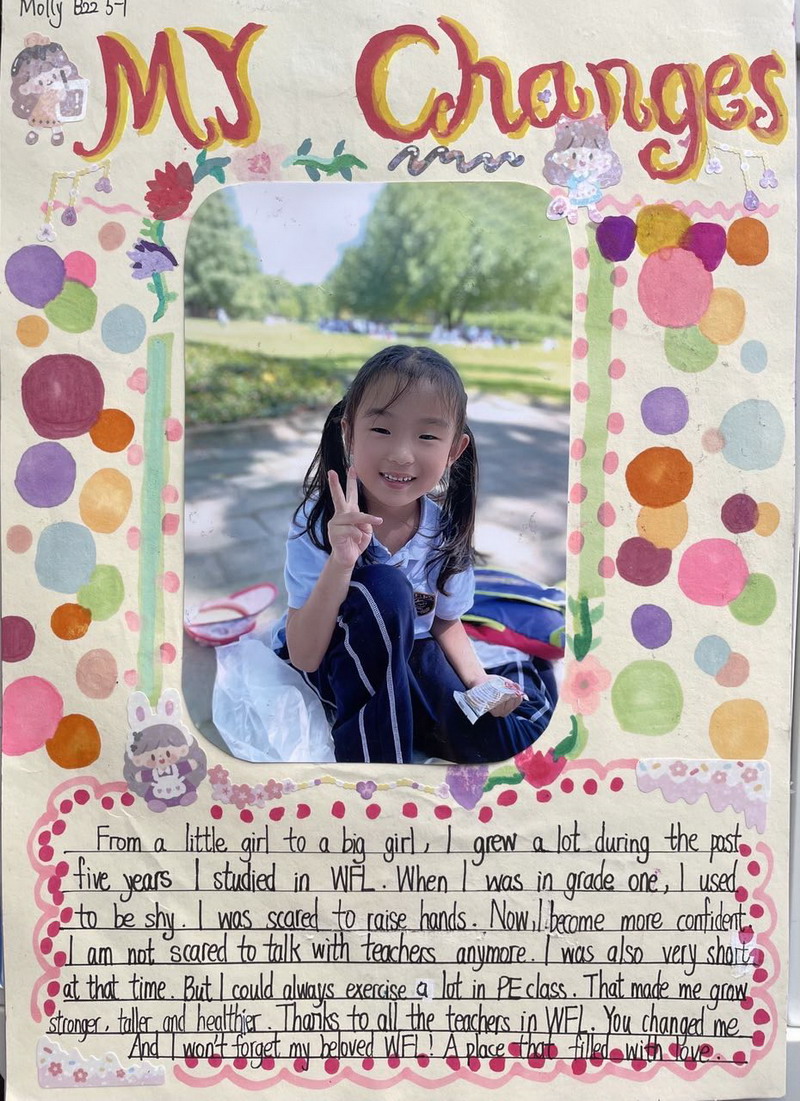 Molly B22 5-1
MY Changes
From a little girl to a big girl, I grew a lot during the past
five years I studied in WFL. When I was in grade one, I used
to be shy. I was scared to raise hands. Now, I become more confident.
I am not scared to talk with teachers anymore. I was also very short
at that time. But I could always exercise a lot in PE class. That made me grow
stronger, taller and healthier. Thanks to all the teachers in WFL. You changed me
And I won't forget my beloved WFL! A place that filled with love.